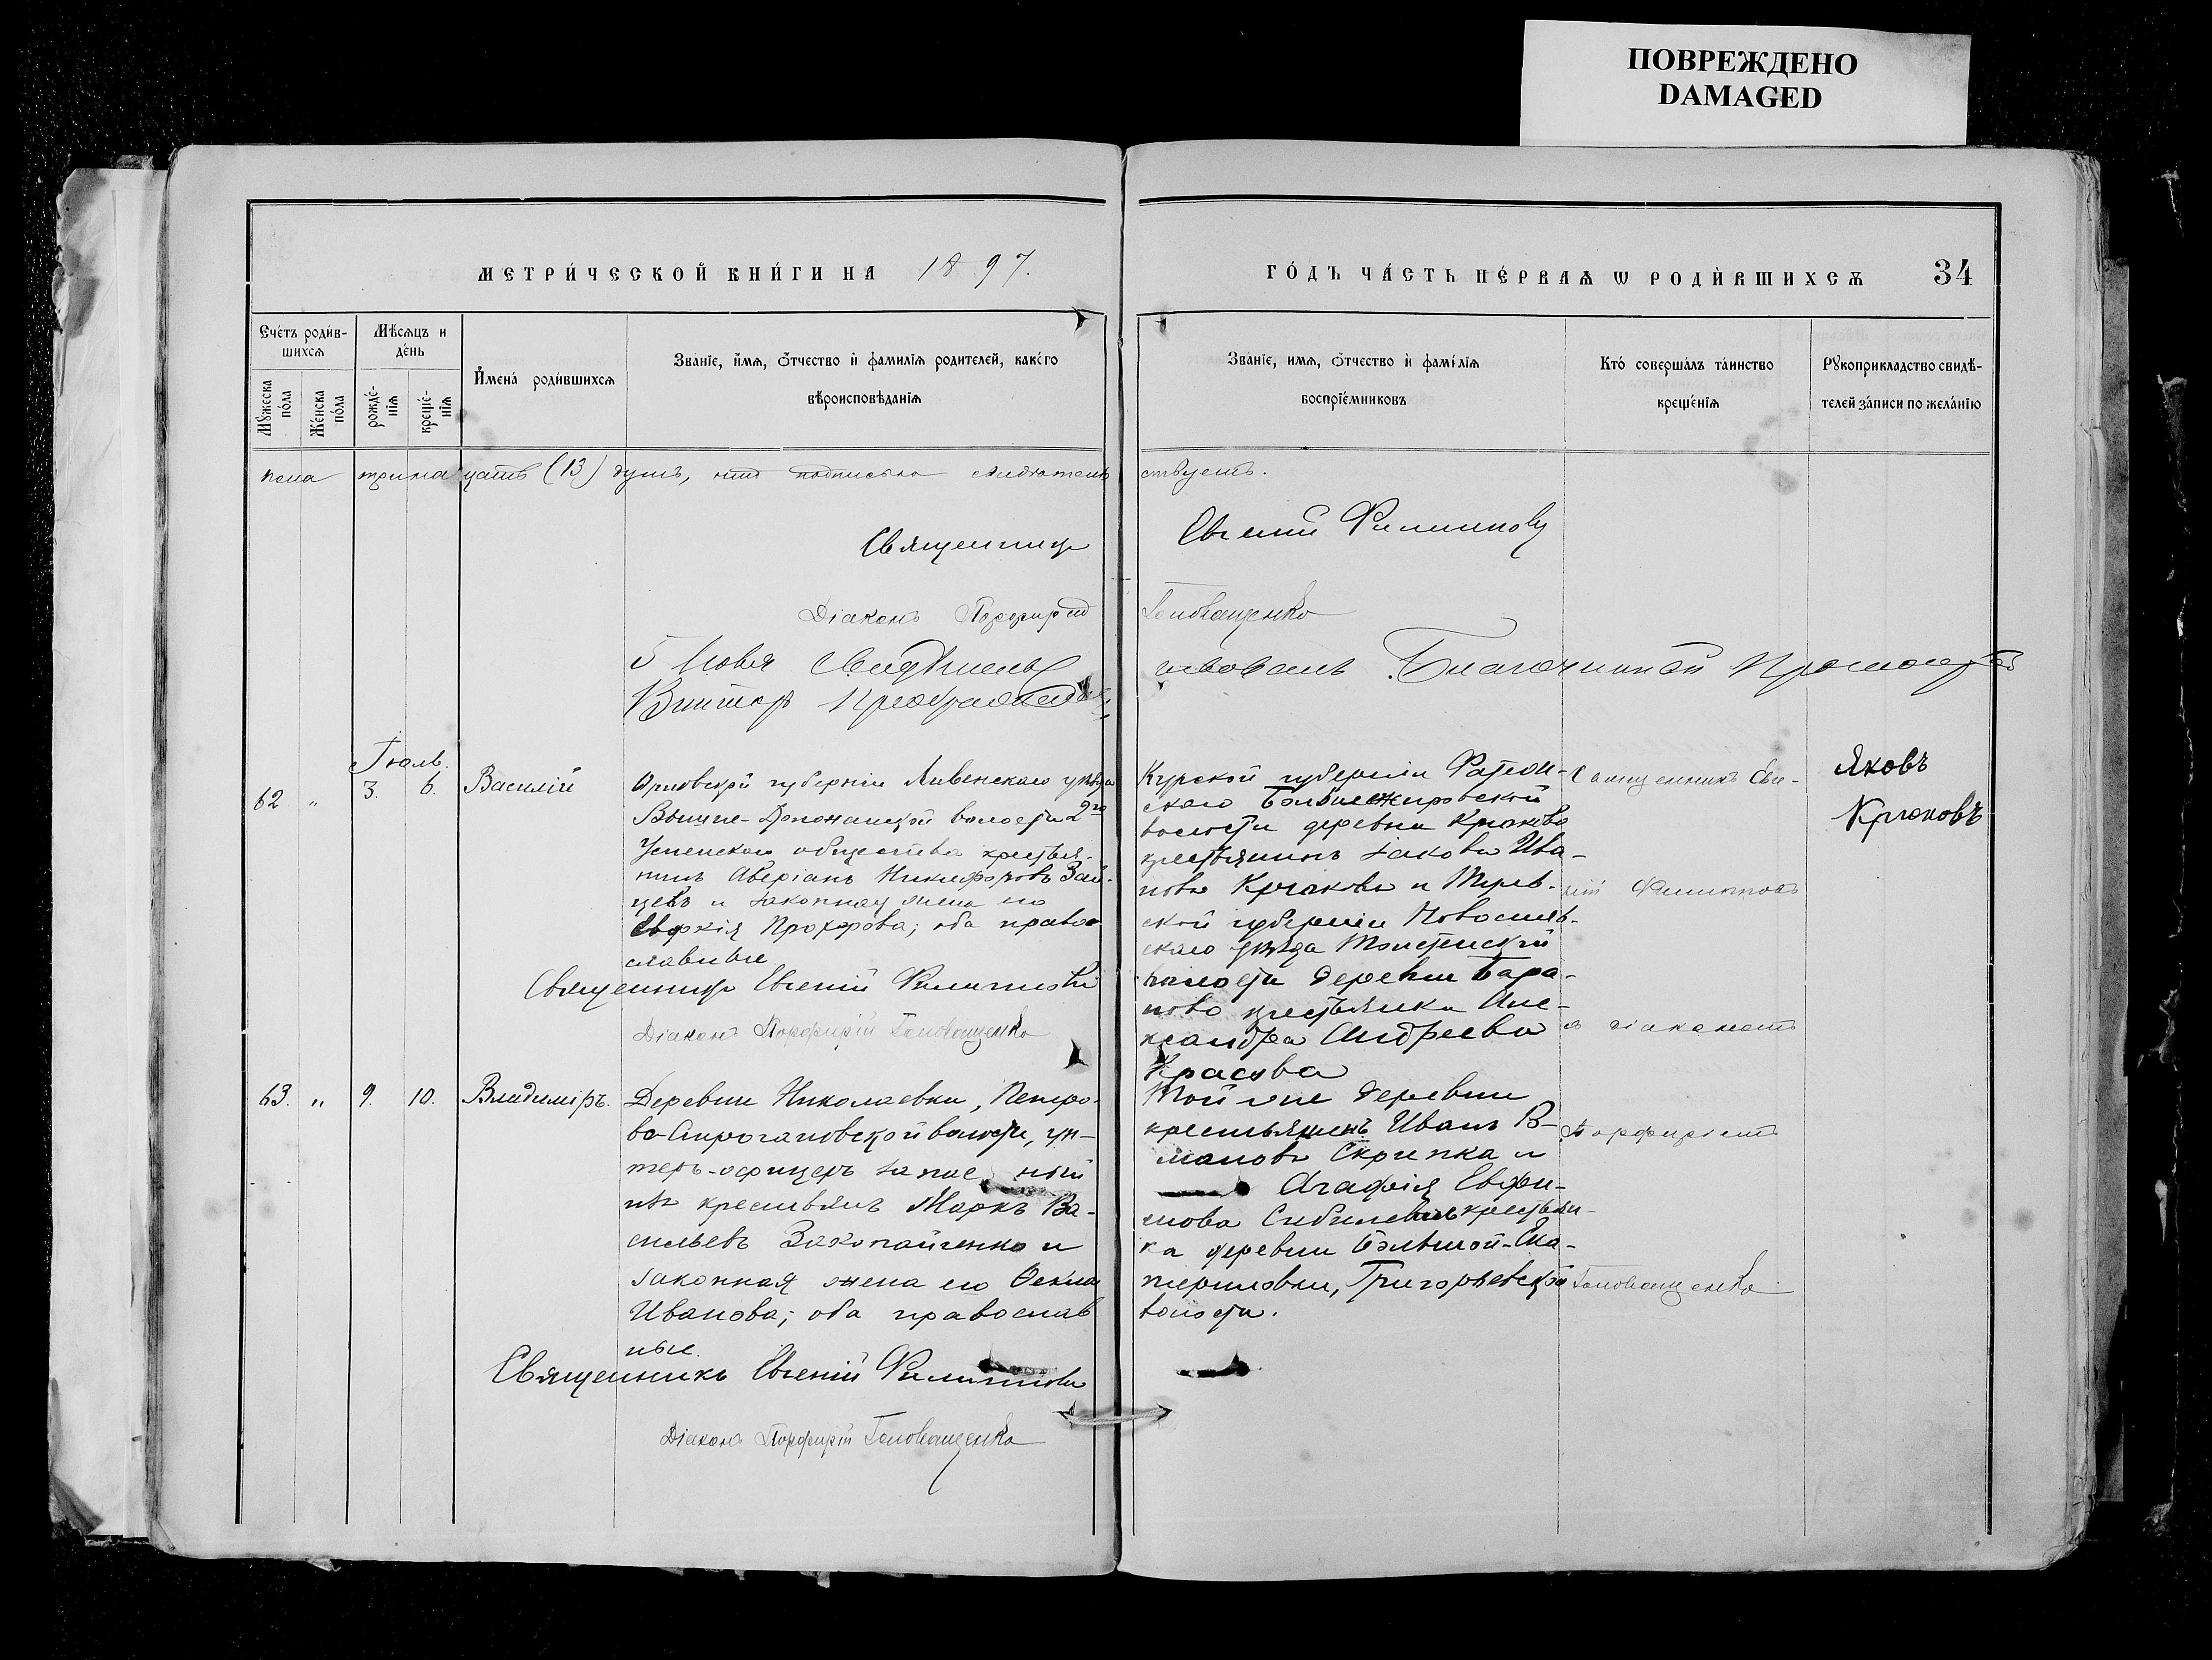 ПОВРЕЖДЕНО
DAMAGED
МЕТРИ́ЧЕСКОЙ КНИ́ГИ НА 1897.
ГО́ДЪ ЧА́СТЬ ПЕ́РВАѦ Ѡ РОДИ́ВШИХСѦ 34
Сче́тъ роди́в-
шихсѧ
Мѣ́сѧцъ и
де́нь
Мꙋ́жеска
по́ла
Же́нска
по́ла
рожде́-
нїѧ
креще́-
нїѧ
И́мена́ роди́вшихсѧ
Зва́нїе, и́мѧ, ѻ́тчество и҆ фами́лїѧ роди́телей, како́го
вѣроисповѣ́данїѧ
Зва́нїе, имѧ, ѻ́тчество и҆ фамі́лїѧ
воспрїе́мниковъ
Кто́ соверша́лъ та́инство
креще́нїѧ
Рꙋкоприкладство свидѣ́-
телей за́писи по жела́нїю
пола тринадцать (13) душъ, что подписью свидетель ствуетъ.
Священникъ Евгений Филипповъ
Діаконъ Порфирій Головащенко
Свидѣтель ствовалъ Благочинный Протоіерей
Викторъ
Іюль.
62 " 3. 6. Василій
Орловской губерніи Ливенскаго уѣзда
волости 2го
Успенскаго общества крестья-
нинъ Аверіанъ Никифоровъ Зай-
цевъ и законная жена его
Евфкія Прохорова; оба право
славные
Священникъ Евгеній Филипповъ
Діаконъ Порфирій Головащенко
Курской губерніи
скаго
волости деревни Крюково
крестьянинъ Іаковъ Ива-
новъ Крюковъ и
ской губерніи Новосиль-
скаго уѣзда
волости деревни Бара-
ново крестьянка Але-
ксандра Андреева
Красова
Священникъ Евге-
ній Филипповъ
съ діакономъ
Порфиріемъ
Головащенко
Яковъ
Крюковъ
63. " 9. 10. Владиміръ.
Деревни Николаевки, Петро-
во- волости, ун-
теръ-офицеръ запас ный
изъ крестьянъ Маркъ Ва-
сильевъ Закопайченко и
законная жена его Ѳекла
Иванова; оба православ
ные.
Священникъ Евгеній Филипповъ
Діаконъ Порфирій Головащенко
Той же деревни
крестьянинъ Иванъ
Скрипка и
Агафія Евфи-
мова крестьян-
ка деревни Большой-Ека-
териновки, Григорьевской
волости.